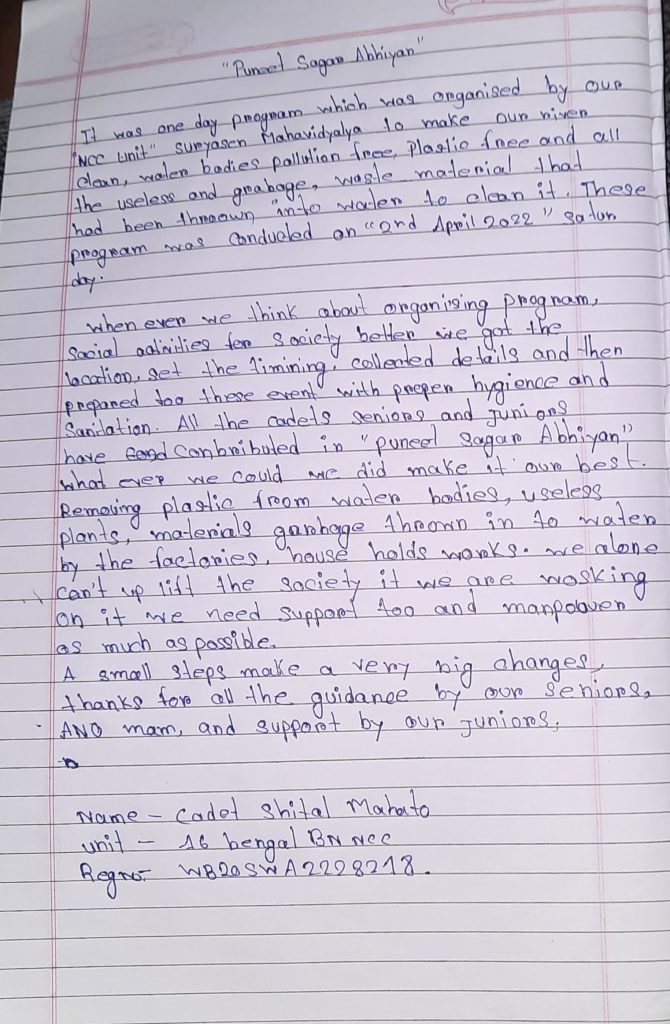 "Puneet Sagar Abhiyan"
It was one day program which was organised by our
"NCC Unit" Suryasen Mahavidyalya to make our river
clean, water bodies pollution free, Plastic free and all
the useless and grabage, waste material that
had been throown into water to clean it. These
program was conducted on "2nd April 2022" Satur
day.
When ever we think about organising program,
Social activities for Society better we got the
location, set the timining, collected details and then
prepared too these event with proper hygience and
Sanitation. All the cadets seniors and juniors
have contribributed in "puneet Sagar Abhiyan"
what ever we could we did make it our best.
Removing plastic froom water bodies, useless
plants, materials garbage thrown in to water
by the factories, house holds works. we alone
can't up lift the society if we are working
on it we need support too and manpower
as much as possible.
A small steps make a very big changes,
thanks for all the guidance by our seniors,
ANO mam, and support by our juniors.
Name - Cadet Shital Mahato
unit - 16 bengal BN NCC
Regno- WB20SWA2228218.